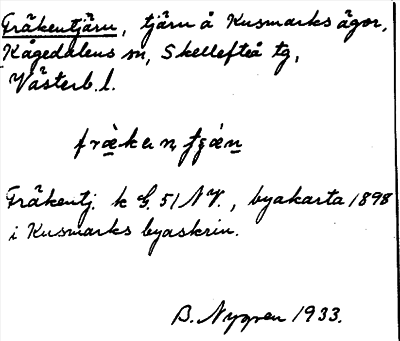 Fräkentjärn, tjärn å Kusmarks ägor,
Kågedalens sn, Skellefteå tg,
Västerb. l.
fràkan, tján
Fräkentj. k G. 51 NV., byakarta 1898
i Kusmarks byaskrin.
B. Nygren 1933.